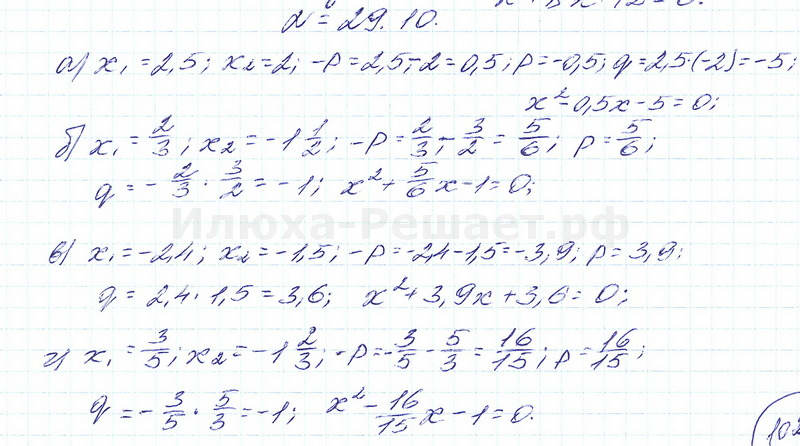 № 29.10.
а) x₁ = 2,5; x₂ = 2; -p = 2,5 - 2 = 0,5; p = -0,5; q = 2,5(-2) = -5;
x² - 0,5x - 5 = 0;
б) x₁ = 2/3; x₂ = -1 1/2; -p = 2/3 - 3/2 = 5/6; p = 5/6;
q = - 2/3 · 3/2 = -1; x² + 5/6 x - 1 = 0;
Илюха-Решает.рф
в) x₁ = -2,4; x₂ = -1,5; -p = -2,4 - 1,5 = -3,9; p = 3,9;
q = 2,4 · 1,5 = 3,6; x² + 3,9x + 3,6 = 0;
г) x₁ = 3/5; x₂ = -1 2/3; -p = - 3/5 - 5/3 = 16/15; p = 16/15;
q = - 3/5 · 5/3 = -1; x² - 16/15 x - 1 = 0.